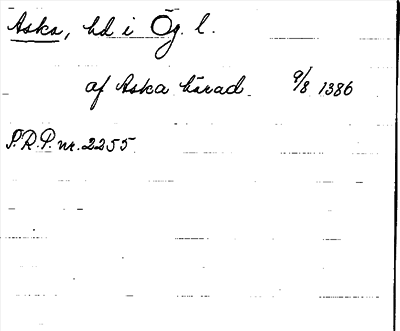 Aska, hd i Ög. l.
af Aska härad 9/8 1386
P.R.P. nr. 2255